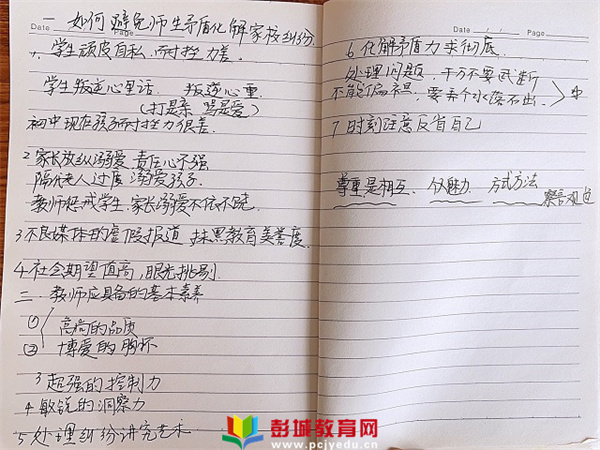 一 如何避免师生矛盾化解家校纠纷
Date Page
1. 学生顽皮自私,耐挫力差
学生叛逆心里话. 叛逆心重
(打是亲 骂是爱)
初中现在孩子耐挫力很差.
2 家长放纵溺爱 责任心不强
隔代老人过度溺爱孩子.
教师惩戒学生.家长溺爱不依不饶.
3 不良媒体的虚假报道 抹黑教育美誉度.
4. 社会期望值高,眼光挑剔
二. 教师应具备的基本素养
① 高尚的品质
② 博爱的胸怀
3 超强的控制力
4 敏锐的洞察力
5 处理纠纷讲究艺术
Date / / Page
6. 化解矛盾力求彻底.
处理问题,千万不要武断
不能偏袒,要弄个水落石出.
7 时刻注意反省自己
尊重是相互. 魅力 方式方法
察言观色
彭城教育网
www.pcjyedu.cn